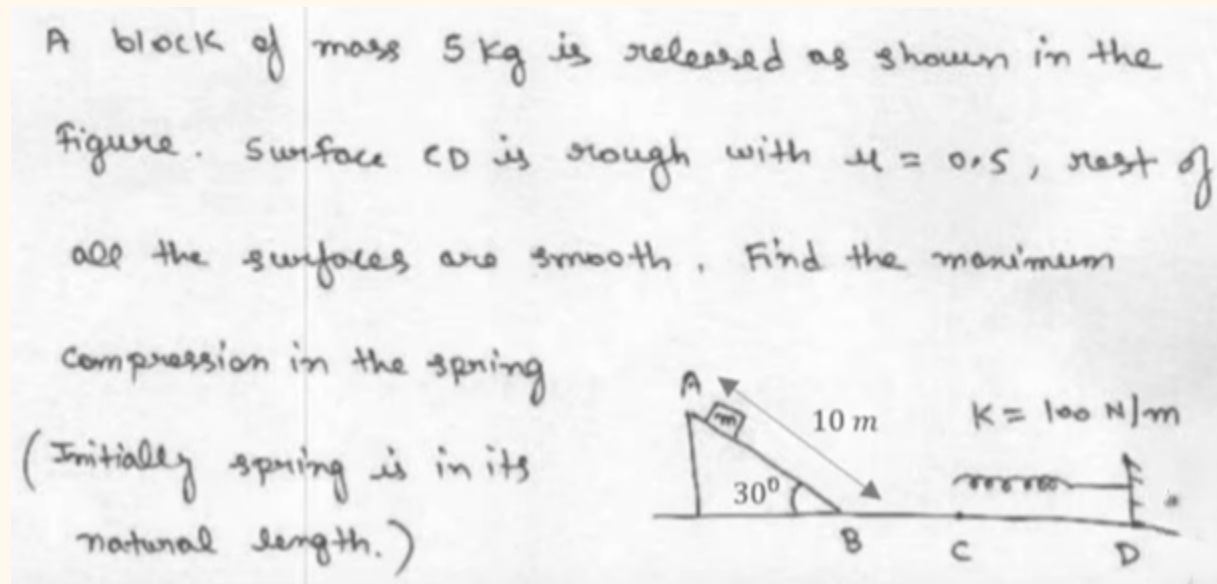 A block of mass 5 kg is released as shown in the
figure. Surface CD is rough with μ = 0.5, rest of
all the surfaces are smooth. Find the maximum
compression in the spring
(Initially spring is in its
natural length.)
A
m
10 m
K = 100 N/m
30⁰
B
C
D